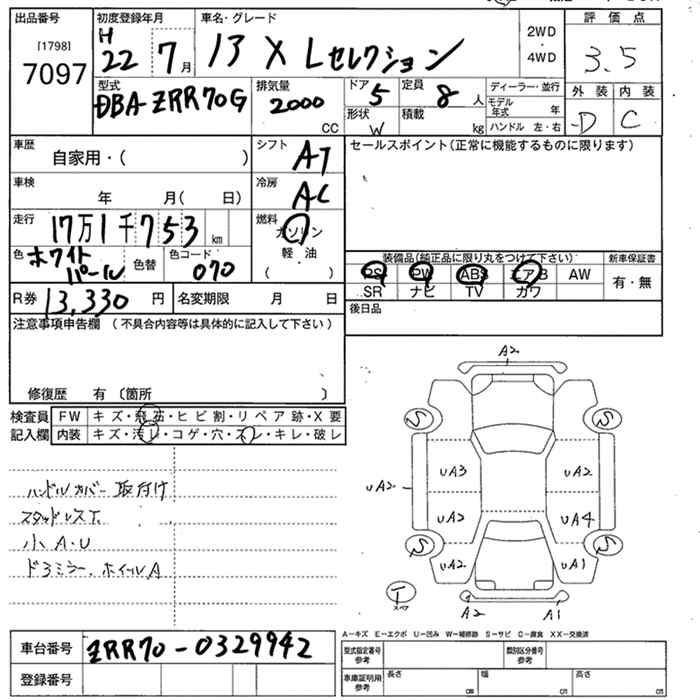 出品番号
[1798]
7097
初度登録年月
H
22 7月
車名・グレード
X Lセレクション
2WD
・
4WD
評価点
3.5
型式
DBA-ZRR70G
排気量
2000
CC
ドア 5
定員 8 人
形状 W
積載 kg
ディーラー・並行
モデル年式 年
ハンドル 左・右
外装 内装
D C
車歴
自家用・( )
シフト AT
セールスポイント(正常に機能するものに限ります)
車検
年 月( 日)
冷房 AC
走行
17万1千753 km
燃料
ガソリン
軽・油
( )
色 ホワイトパール
色替
色コード 070
装備品(純正品に限り丸をつけて下さい)
新車保証書
PS PW ABS エアB AW
有・無
SR ナビ TV カワ
R券 13,330 円
名変期限 月 日
後日品
注意事項申告欄 (不具合内容等は具体的に記入して下さい)
修復歴 有 〔箇所 〕
検査員 FW キズ・飛石・ヒビ割・リペア跡・X要
記入欄 内装 キズ・汚レ・コゲ・穴・スレ・キレ・破レ
ハンドルカバー取付け
スタッドレスT
小A.U
ドアミラー.ホイールA
A2
S S
UA3 UA2
UA2
UA2 UA4
S S
UA2 UA1
T
スペア
A2 A1
A−キズ E−エクボ U−凹み W−補修跡 S−サビ C−腐食 XX−交換済
車台番号 ZRR70-0329942
登録番号
型式指定番号
参考
類別区分番号
参考
車庫証明用
参考
長さ cm
幅 cm
高さ cm